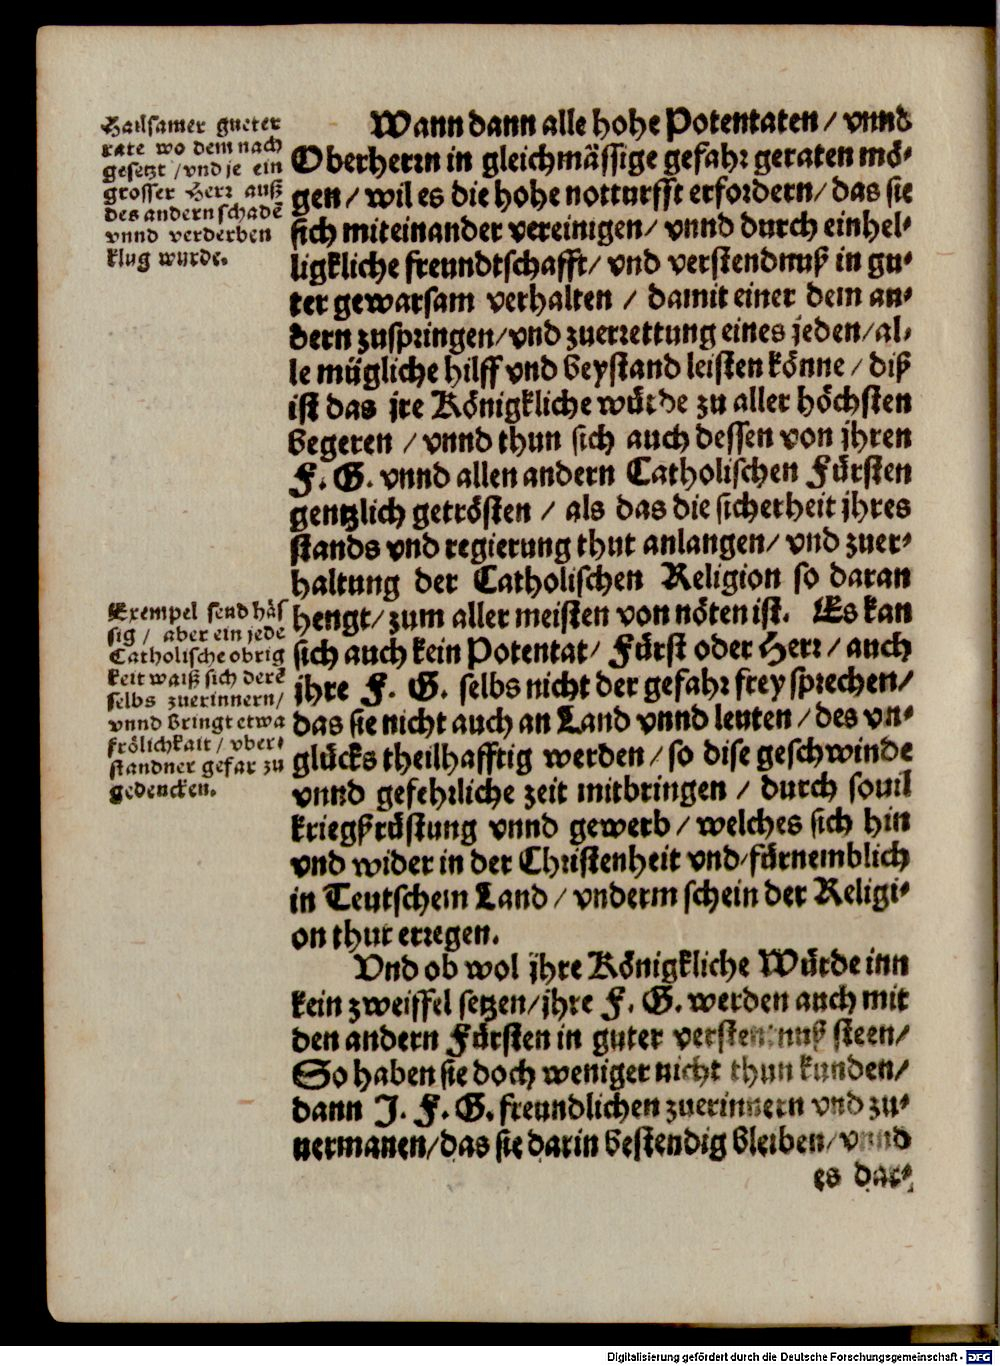 Hailsamer gueter
rate wo dem nach
gesetzt / vnd je ein
grosser Herr auß
des andern schadē
vnnd verderben
klug wurde.
Wann dann alle hohe Potentaten / vnnd
Oberherrn in gleichmässige gefahr geraten mö-
gen / wil es die hohe notturfft erfordern / das sie
sich miteinander vereinigen / vnnd durch einhel-
ligkliche freundtschafft / vnd verstendnuß in gu-
ter gewarsam verhalten / damit einer dem an-
dern zuspringen / vnd zuerrettung eines jeden / al-
le mügliche hilff vnd beystand leisten könne / diß
ist das jre Königkliche würde zu aller höchsten
begeren / vnnd thun sich auch dessen von jhren
F. G. vnnd allen andern Catholischen Fürsten
gentzlich getrösten / als das die sicherheit jhres
stands vnd regierung thut anlangen / vnd zuer-
haltung der Catholischen Religion so daran
hengt / zum aller meisten von nöten ist. Es kan
sich auch kein Potentat / Fürst oder Herr / auch
jhre F. G. selbs nicht der gefahr frey sprechen /
das sie nicht auch an Land vnnd leuten / des vn-
glücks theilhafftig werden / so dise geschwinde
vnnd gefehrliche zeit mitbringen / durch souil
kriegßrüstung vnnd gewerb / welches sich hin
vnd wider in der Christenheit vnd fürnemblich
in Teutschem Land / vnderm schein der Religi-
on thut erregen.
Exempel send häs
sig / aber ein jede
Catholische obrig
keit waiß sich derē
selbs zuerinnern /
vnnd bringt etwa
frölichkait / vber-
standner gefar zu
gedencken.
Vnd ob wol jhre Königkliche Würde inn
kein zweiffel setzen / jhre F. G. werden auch mit
den andern Fürsten in guter verstentnuß steen /
So haben sie doch weniger nicht thun kunden /
dann J. F. G. freundlichen zuerinnern vnd zu-
uermanen / das sie darin bestendig bleiben / vnnd
es dar-
Digitalisierung gefördert durch die Deutsche Forschungsgemeinschaft - DFG